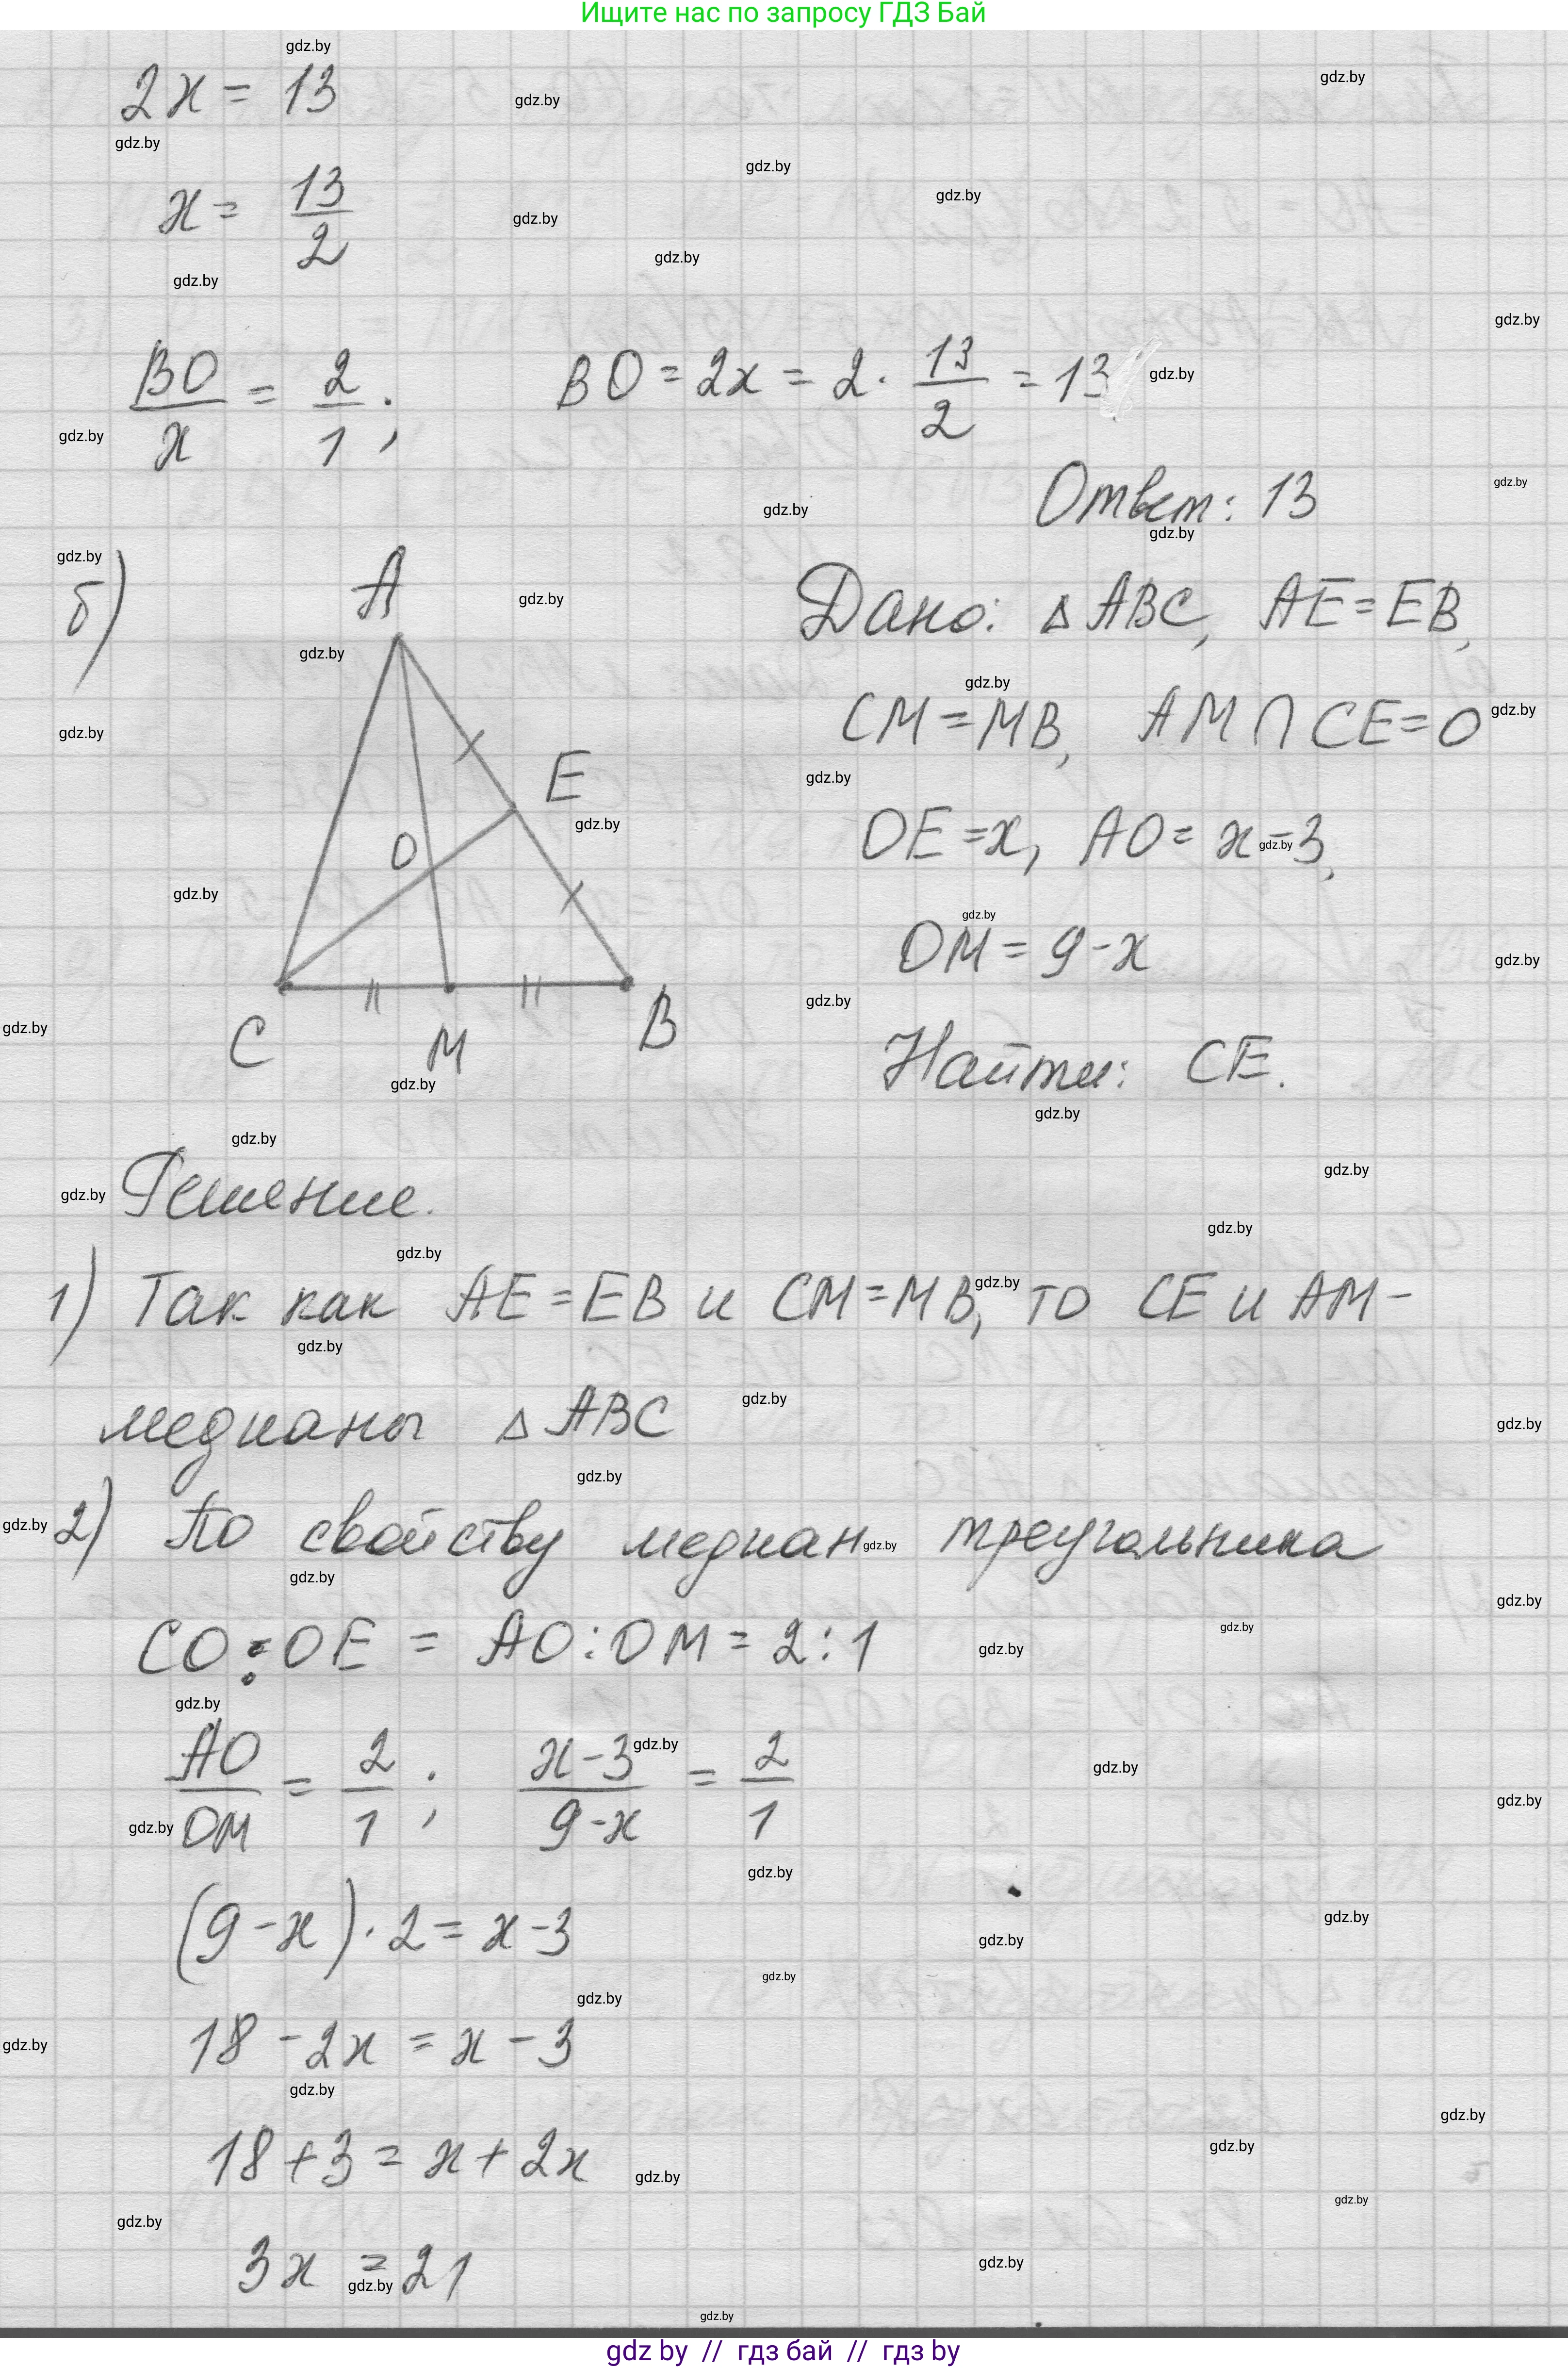 Ищите нас по запросу ГДЗ Бай
2x = 13
x = 13/2
BO/x = 2/1; BO = 2x = 2 · 13/2 = 13
Ответ: 13
б)
A
E
O
C
M
B
Дано: △ABC, AE = EB,
CM = MB, AM ∩ CE = O
OE = x, AO = x - 3,
OM = 9 - x
Найти: CE.
Решение.
1) Так как AE = EB и CM = MB, то CE и AM -
медианы △ABC
2) По свойству медиан треугольника
CO : OE = AO : OM = 2 : 1
AO/OM = 2/1; x-3/9-x = 2/1
(9 - x) · 2 = x - 3
18 - 2x = x - 3
18 + 3 = x + 2x
3x = 21
gdz.by
gdz by // гдз бай // гдз by